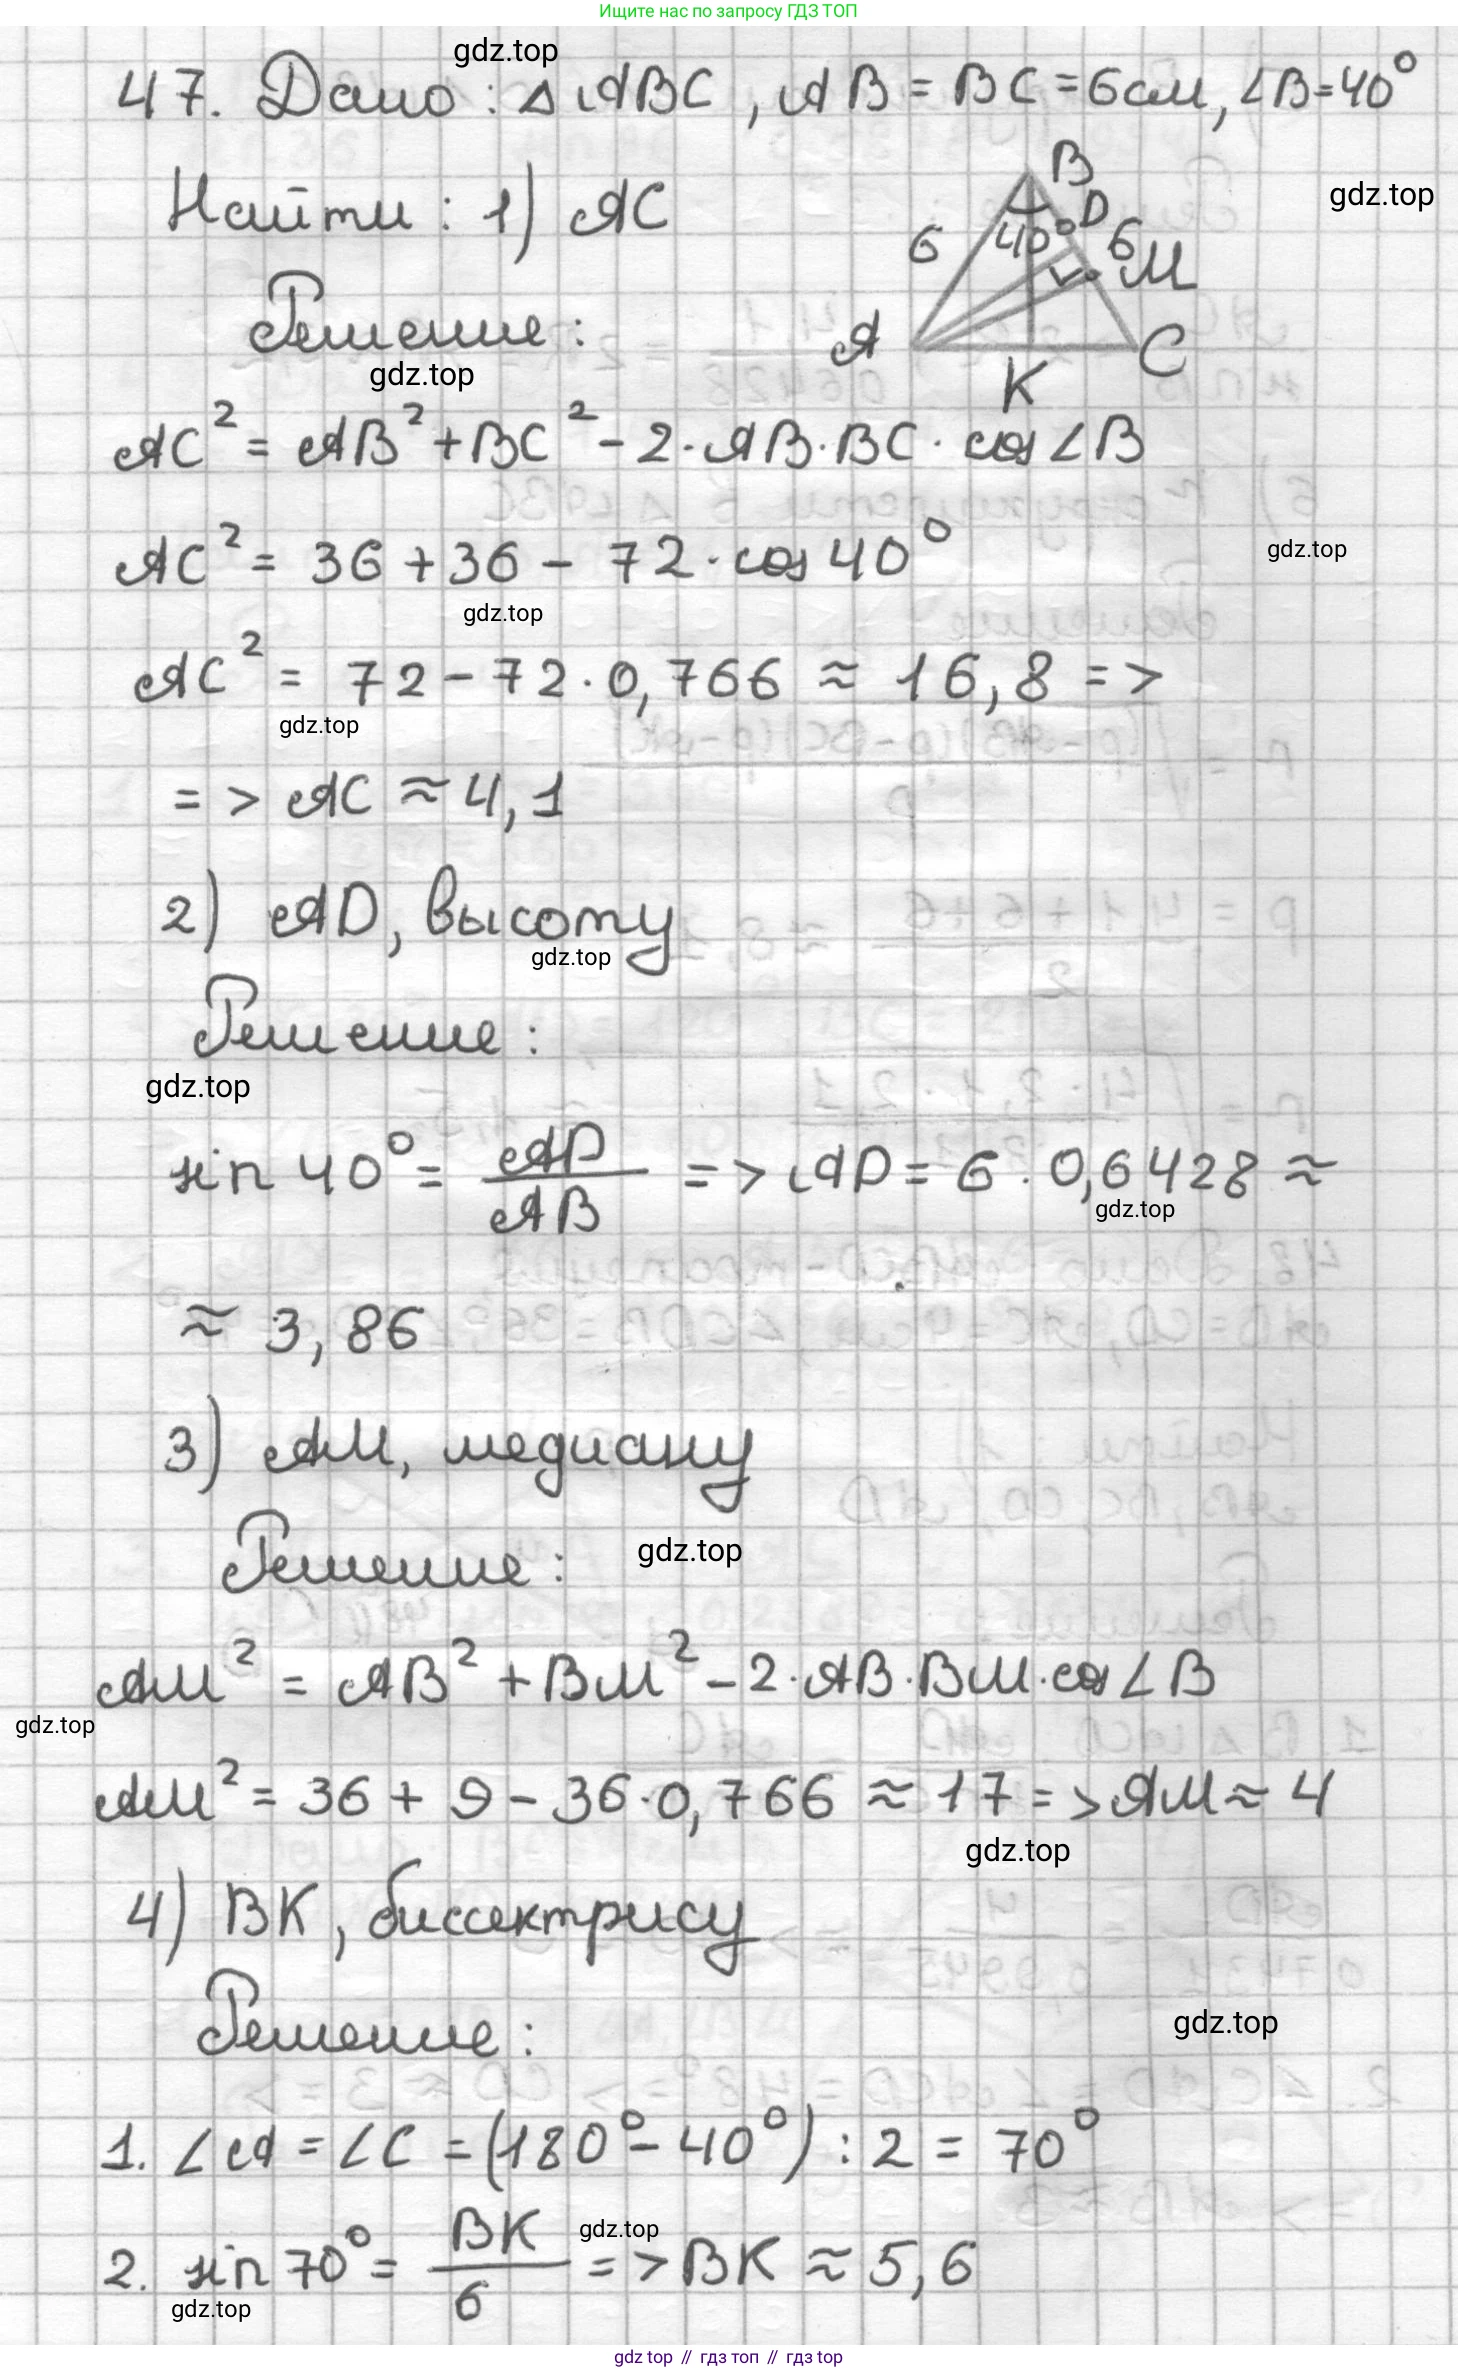 Ищите нас по запросу ГДЗ ТОП
gdz.top
47. Дано: △ ABC, AB = BC = 6см, ∠B=40°
Найти: 1) AC
gdz.top
B
D
6
40°
6
M
Решение:
A
C
K
gdz.top
AC² = AB² + BC² - 2·AB·BC·cos∠B
AC² = 36 + 36 - 72·cos 40°
gdz.top
gdz.top
AC² = 72 - 72·0,766 ≈ 16,8 =>
gdz.top
=> AC ≈ 4,1
2) AD, высоту
gdz.top
Решение:
gdz.top
sin 40° = AD/AB => AD = 6·0,6428 ≈
gdz.top
≈ 3,86
3) AM, медиану
Решение:
gdz.top
AM² = AB² + BM² - 2·AB·BM·cos∠B
gdz.top
AM² = 36 + 9 - 36·0,766 ≈ 17 => AM ≈ 4
gdz.top
4) BK, биссектрису
Решение:
gdz.top
1. ∠A = ∠C = (180° - 40°) : 2 = 70°
2. sin 70° = BK/6 => BK ≈ 5,6
gdz.top
gdz.top
gdz top // гдз топ // гдз top